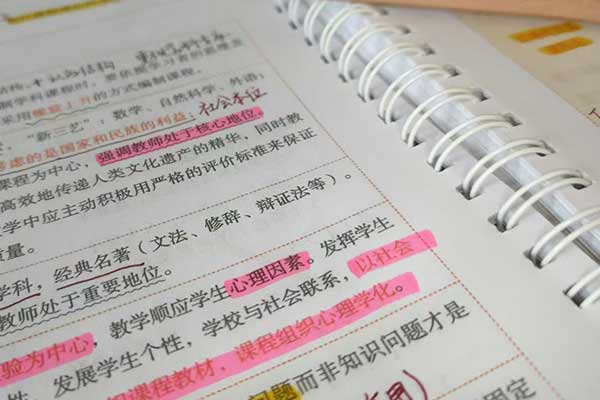 结构，认知结构，重视学科
制学科课程时，要依据学习者的思维
采用螺旋上升的方式编制课程。
"新三艺"：数学、自然科学、外语；
考虑的是国家和民族的利益；社会本位
课程为中心，强调教师处于核心地位。
高效地传递人类文化遗产的精华，同时教
学中应主动积极用严格的评价标准来保证
质量。
学科，经典名著（文法、修辞、辩证法等）。
教师处于重要地位。
验为中心，教学顺应学生心理因素。发挥学生
性，发展学生个性，学校与社会联系，以社会
课程教材，课程组织心理学化。
问题而非知识问题才是
固定